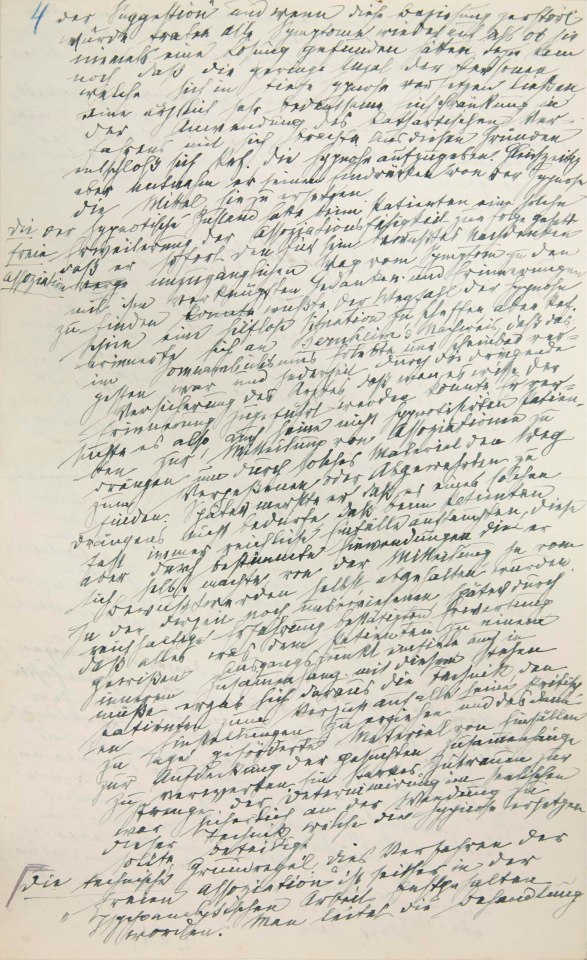 4
der Suggestion und wenn diese Beziehung zerstört
wurde traten alle Symptome wieder auf als ob sie
niemals eine Lösung gefunden hätten dazu kam
noch daß die geringe Anzahl der Personen
welche sich in tiefe Hypnose versetzen ließen
eine ärztlich sehr bedeutsame Einschränkung in
der Anwendung des kathartischen Ver-
fahrens mit sich brachte. Aus diesen Gründen
entschloß sich Ref. die Hypnose aufzugeben. Gleichzeitig
aber entnahm er seinen Eindrücken von der Hypnose
die Mittel sie zu ersetzen
Die
freie
Assoziation
Der hypnotische Zustand hatte beim Patienten eine solche
Erweiterung der Assoziationsfähigkeit zur Folge gehabt
daß er sofort den für sein bewußtes Nachdenken
unzugänglichen Weg vom Symptom zu den
mit ihm verknüpften Gedanken und Erinnerungen
zu finden wußte der Wegfall der Hypnose
schien eine hilflose Situation zu schaffen aber Ref.
erinnerte sich an Bernheim's Nachweis, daß das
im Somnambulismus Erlebte nur scheinbar ver-
gessen war und jederzeit durch die dringende
Versicherung des Arztes daß man es wisse der
Erinnerung zugeführt werden konnte Er ver-
suchte es also auch seine nicht hypnotisirten Patien-
ten zur Mitteilung von Assoziationen zu
drängen um durch solches Material den Weg
zum Vergeßenen oder Abgewehrten zu
finden. Später merkte er daß es eines solchen
Drängens nicht bedürfe daß beim Patienten
fast immer reichliche Einfälle auftauchten, diese
aber durch bestimmte Einwendungen die er
sich selbst machte von der Mitteilung ja vom
Bewußtwerden selbst abgehalten wurden.
In der derzeit noch unbewiesenen später durch
reichhaltige Erfahrung bestätigten Erwartung
daß alles was dem Patienten zu einem
gewißen Ausgangspunkt einfiele auch in
innerem Zusammenhang mit diesem stehen
müße ergab sich daraus die Technik den
Patienten zum Verzicht auf alle seine kritisch-
en Einstellungen zu erziehen und das dann
zu Tage geförderte Material von Einfällen
zur Aufdeckung der gesuchten Zusammenhänge
zu verwerten. Ein starkes Zutrauen zur
Strenge der Determinirung im Seelischen
war sicherlich an der Wendung zu
dieser Technik welche die Hypnose ersetzen
sollte beteiligt
Die technische Grundregel dies Verfahren der
„freien Assoziation" ist seither in der
psychoanalytischen Arbeit festgehalten
worden. Man leitet die Behandlung